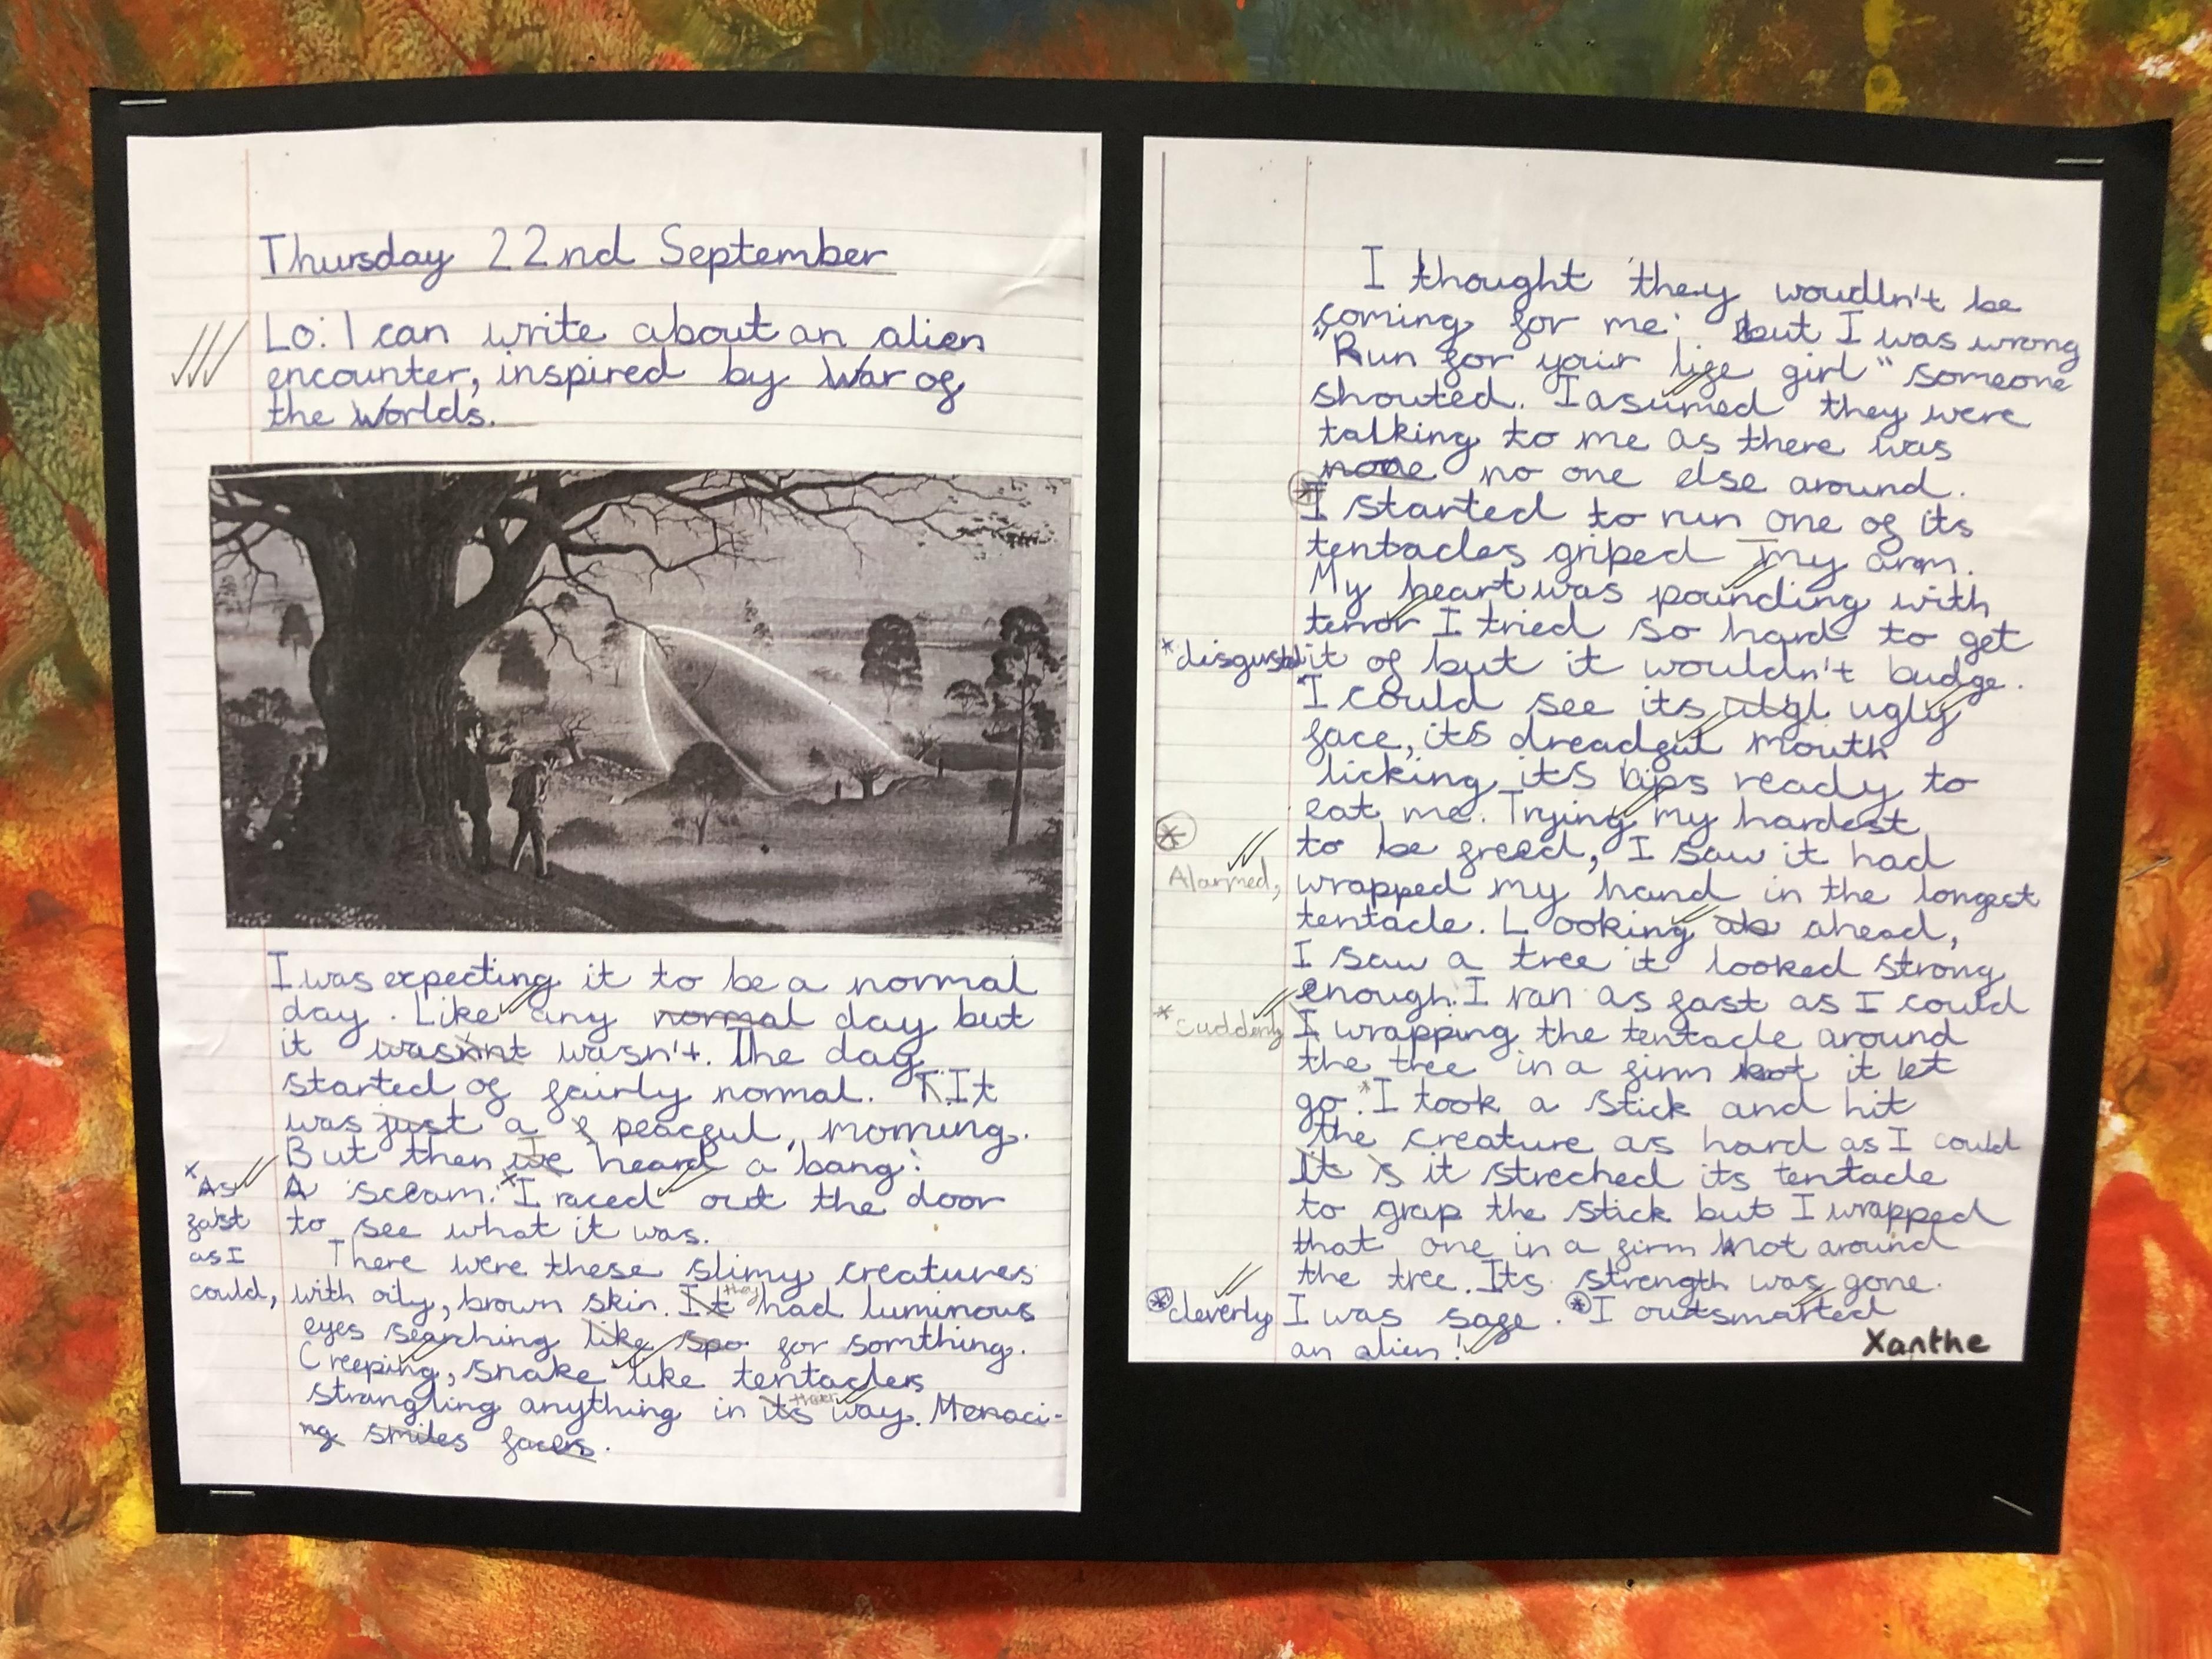 Thursday 22nd September
Lo: I can write about an alien
encounter, inspired by War of
the Worlds.
I was expecting it to be a normal
day. Like any normal day but
it wasnnt wasn't. The day
started of fairly normal. T It
was just a peaceful, morning.
But then we I heard a bang!
A scream. *I raced out the door
to see what it was.
*As
fast
as I
could,
There were these slimy creatures
with oily, brown skin. It they had luminous
eyes searching like spo for somthing.
Creeping, snake like tentacles
strangling anything in its their way. Menaci-
ng smiles faces.
I thought they woudln't be
coming for me. but I was wrong
"Run for your life girl" someone
shouted. I asumed they were
talking to me as there was
none no one else around.
* I started to run one of its
tentacles griped my arm.
My heart was pounding with
terror I tried so hard to get
*disgusted
it of but it wouldn't budge.
I could see its utgl ugly
face, its dreadful mouth
licking its lips ready to
eat me. Trying my hardest
to be freed, I saw it had
*
Alarmed,
wrapped my hand in the longest
tentacle. Looking ab ahead,
I saw a tree it looked strong
enough. I ran as fast as I could
*suddenly
I wrapping the tentacle around
the tree in a firm knot it let
go.*I took a stick and hit
the creature as hard as I could
It is it streched its tentacle
to grap the stick but I wrapped
that one in a firm knot around
the tree. Its strength was gone.
*cleverly
I was safe. *I outsmarted
an alien!
Xanthe